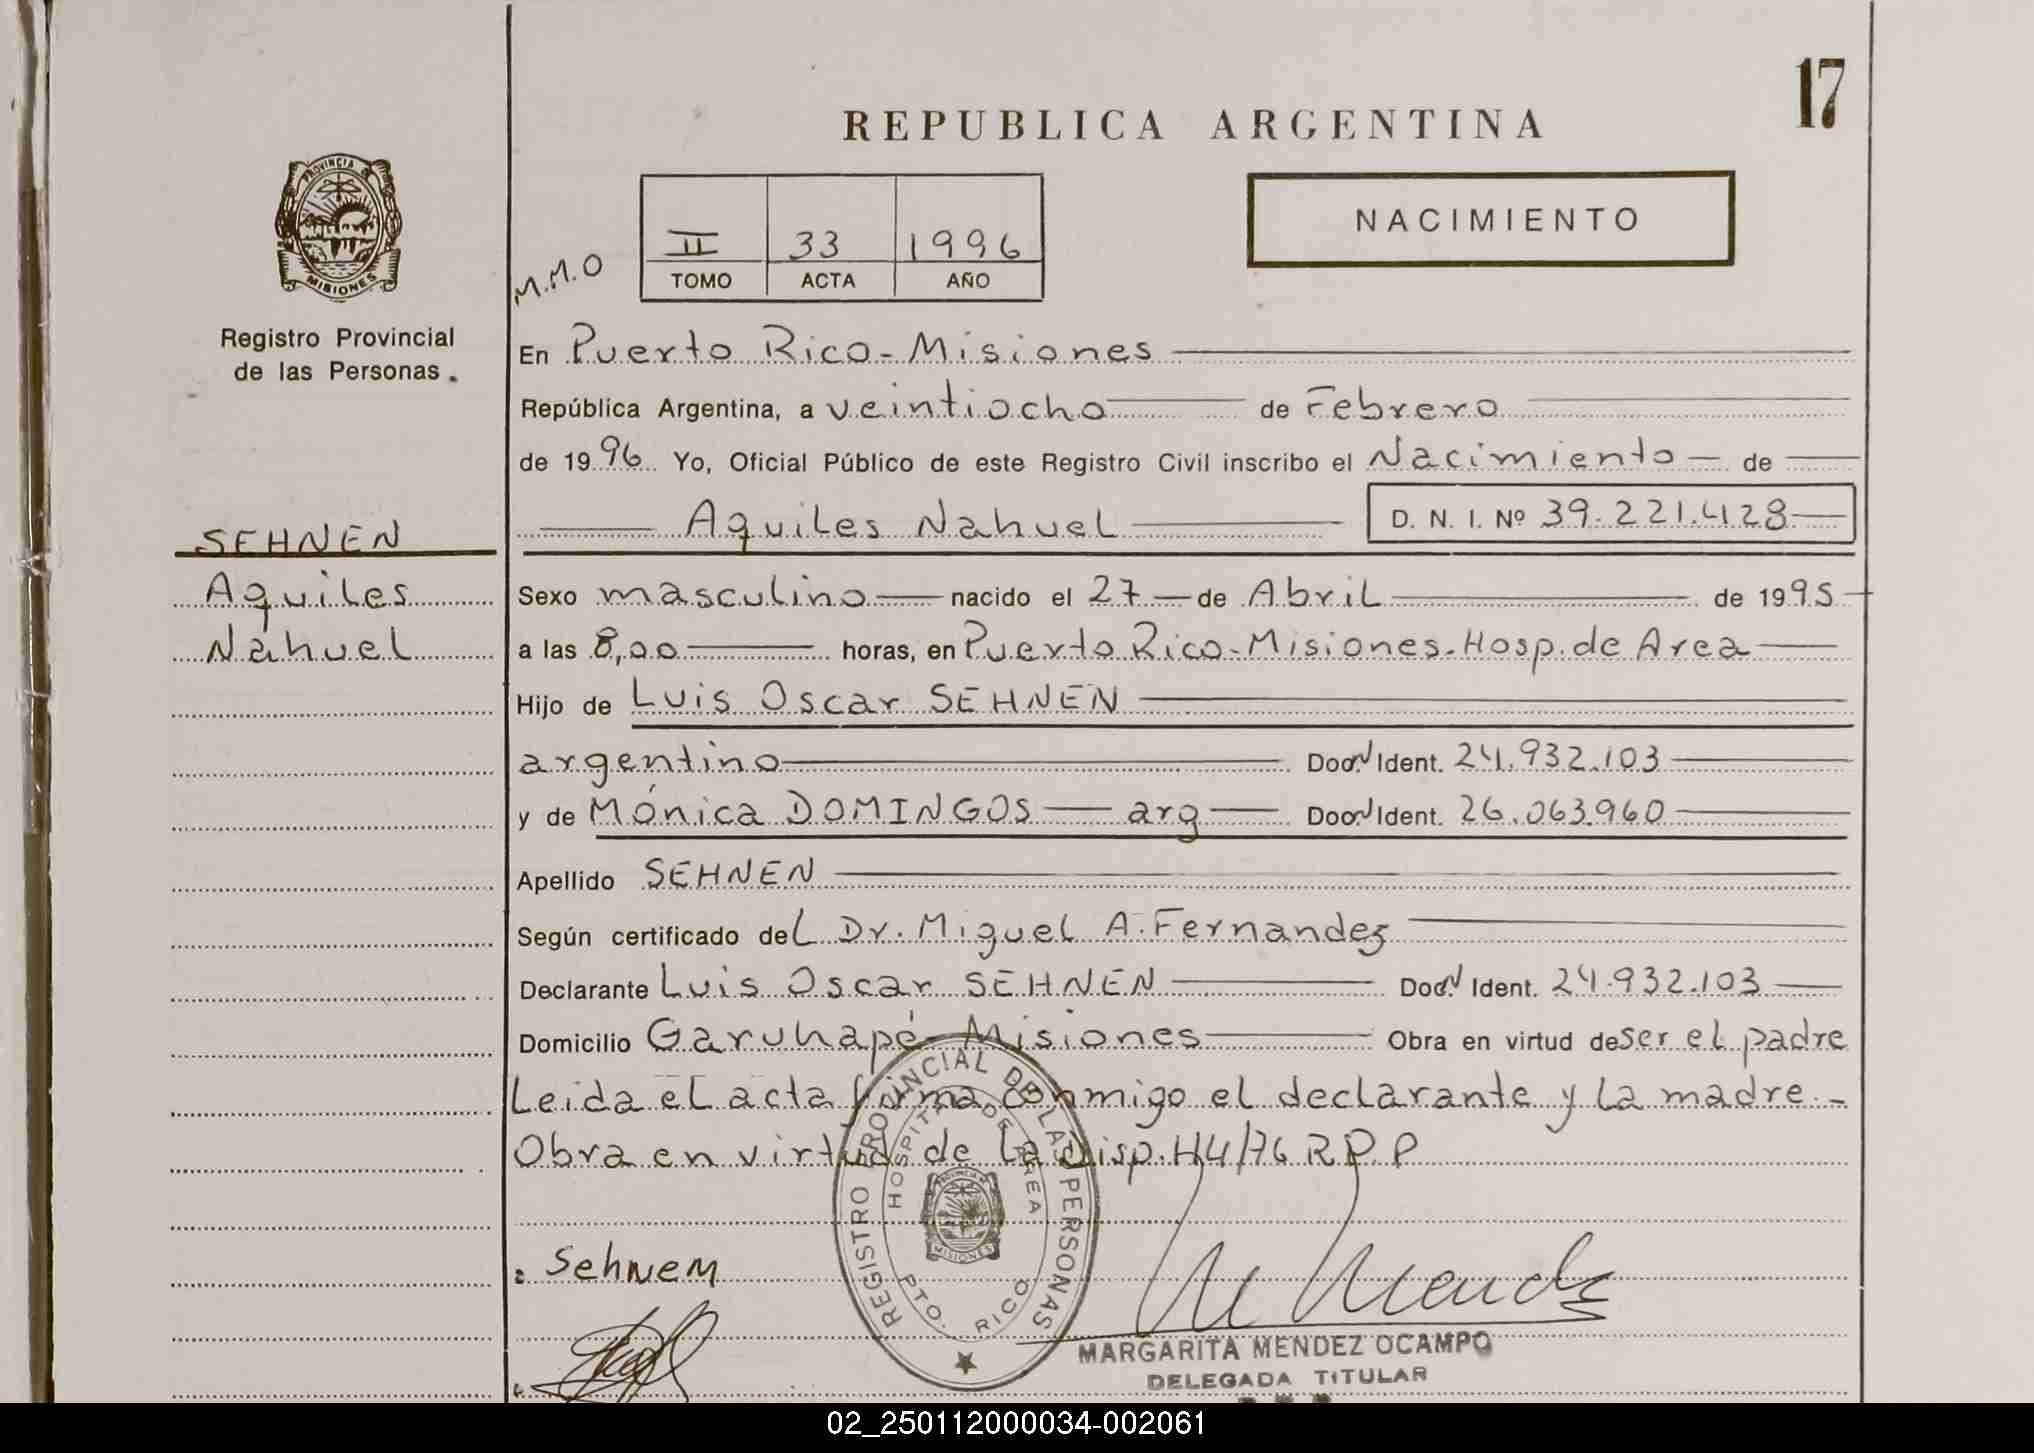 17
REPUBLICA ARGENTINA
PROVINCIA DE
MISIONES
NACIMIENTO
II 33 1996
TOMO ACTA AÑO
M.M.O
Registro Provincial
de las Personas.
En Puerto Rico-Misiones
República Argentina, a veintiocho de Febrero
de 1996 Yo, Oficial Público de este Registro Civil inscribo el Nacimiento de
SEHNEN
Aquiles Nahuel D. N. I. Nº 39.221.428
Aquiles
Sexo masculino nacido el 27 de Abril de 1995
Nahuel
a las 8,00 horas, en Puerto Rico-Misiones-Hosp.de Area
Hijo de Luis Oscar SEHNEN
argentino Ident. 24.932.103
y de Mónica DOMINGOS arg Ident. 26.063.960
Apellido SEHNEN
Según certificado del Dr. Miguel A. Fernandez
Declarante Luis Oscar SEHNEN Ident. 24.932.103
Domicilio Garuhapé-Misiones Obra en virtud de ser el padre
Leida el acta firma conmigo el declarante y la madre.-
Obra en virtud de la Disp. R.P.P
REGISTRO PROVINCIAL DE LAS PERSONAS
HOSPITAL DE AREA
MISIONES
PTO. RICO
Sehnem
MARGARITA MENDEZ OCAMPO
DELEGADA TITULAR
02_250112000034-002061